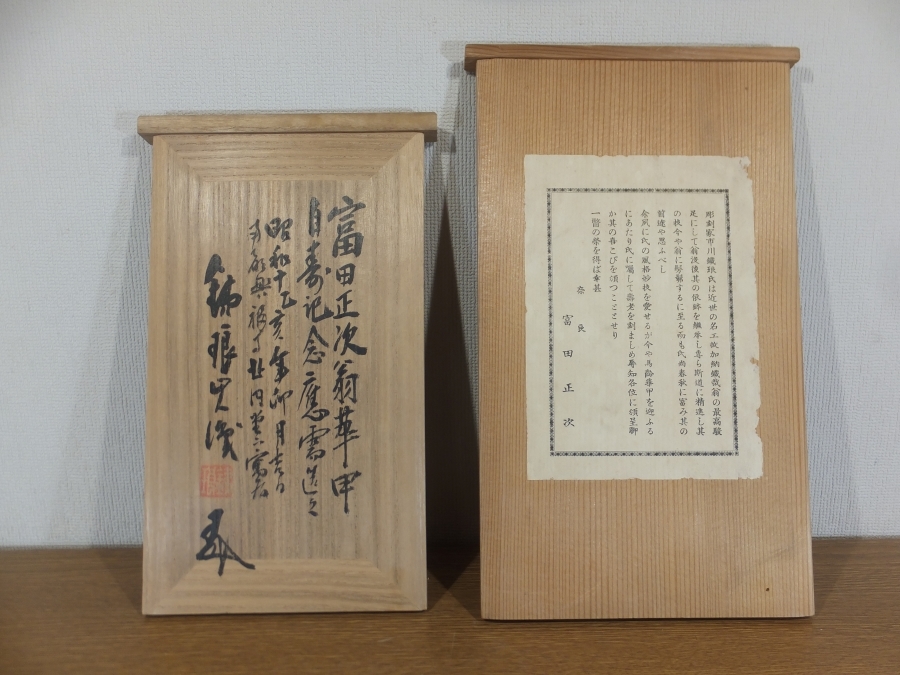 富田正次翁華甲
自寿記念應需造之
昭和十乙亥年卯月吉日
於南都興福寺北円堂
鐵琅
彫刻家市川鐵琅氏は近世の名工故加納鐵哉翁の最高駿
足にして翁没後其の依鉢を繼承し専ら斯道に精進し其
の技今や翁に髣髴するに至る而も氏尚春秋に富み其の
前途や思ふべし
余夙に氏の風格妙技を愛せるが今や馬齢華甲を迎ふる
にあたり氏に囑して壽老を刻ましめ辱知各位に頒呈聊
か其の喜こびを頒つこととせり
一瞥の榮を得ば幸甚
奈良
富田正次